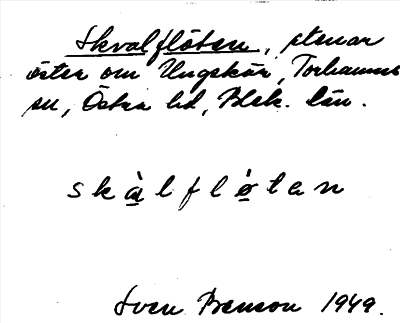 Skvalflöten, stenar
öster om Ungskär, Torhamns
sn, Östra hd, Blek. län.
skàlflø̀tan
Sven Benson 1949.